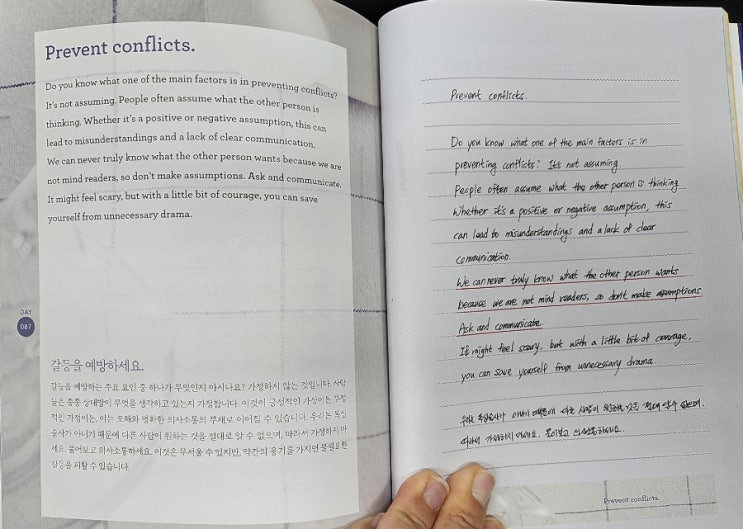 Prevent conflicts.
Do you know what one of the main factors is in preventing conflicts?
It's not assuming. People often assume what the other person is
thinking. Whether it's a positive or negative assumption, this can
lead to misunderstandings and a lack of clear communication.
We can never truly know what the other person wants because we are
not mind readers, so don't make assumptions. Ask and communicate.
It might feel scary, but with a little bit of courage, you can save
yourself from unnecessary drama.
DAY
087
갈등을 예방하세요.
갈등을 예방하는 주요 요인 중 하나가 무엇인지 아시나요? 가정하지 않는 것입니다. 사람
들은 종종 상대방이 무엇을 생각하고 있는지 가정합니다. 이것이 긍정적인 가정이든 부정
적인 가정이든, 이는 오해와 명확한 의사소통의 부재로 이어질 수 있습니다. 우리는 독심
술사가 아니기 때문에 다른 사람이 원하는 것을 절대로 알 수 없으며, 따라서 가정하지 마
세요. 물어보고 의사소통하세요. 이것은 무서울 수 있지만, 약간의 용기를 가지면 불필요한
갈등을 피할 수 있습니다.
Prevent conflicts.
Do you know what one of the main factors is in
preventing conflicts? It's not assuming.
People often assume what the other person is thinking.
Whether it's a positive or negative assumption, this
can lead to misunderstandings and a lack of clear
communication.
We can never truly know what the other person wants
because we are not mind readers, so don't make assumptions.
Ask and communicate.
It might feel scary, but with a little bit of courage,
you can save yourself from unnecessary drama.
우리는 독심술사가 아니기 때문에 다른 사람이 원하는 것을 절대 알 수 없으며,
가정하지 마세요. 물어보고 의사소통하세요.
Prevent conflicts.